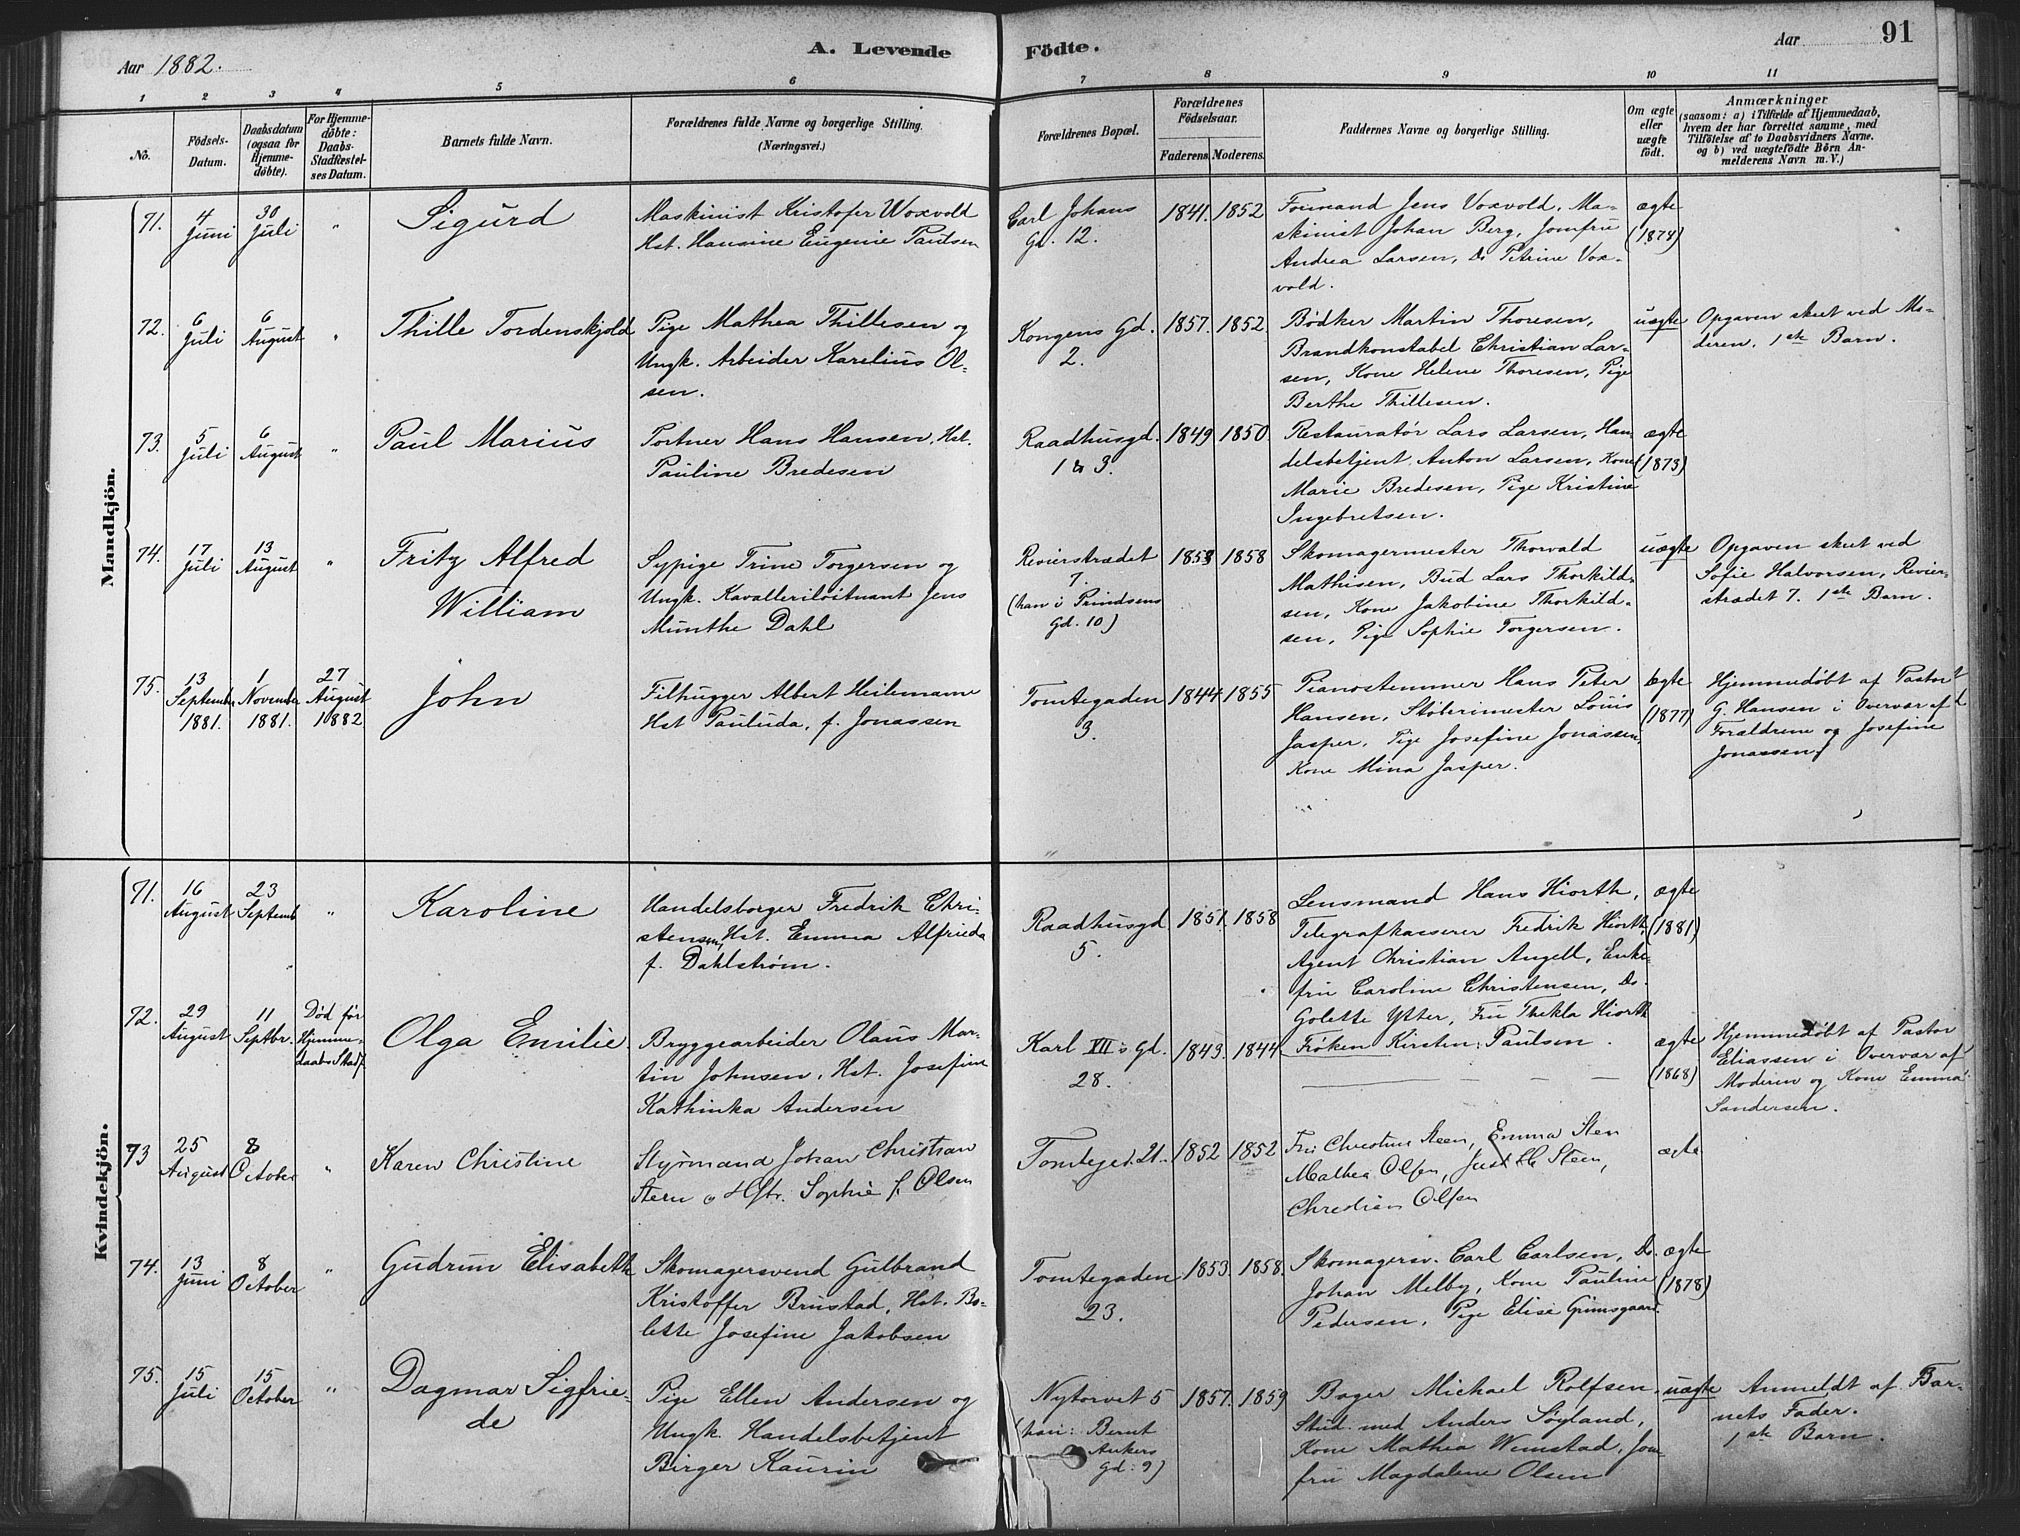 Aar 1882.
A. Levende Födte.
Aar
91
1 2 3 4 5 6 7 8 9 10 11
No.
Födsels-Datum.
Daabsdatum (ogsaa for Hjemme-döbte).
For Hjemme-döbte: Daabs-Stadfæstel-ses Datum.
Barnets fulde Navn.
Forældrenes fulde Navne og borgerlige Stilling. (Næringsvei.)
Forældrenes Bopæl.
Forældrenes Födselsaar.
Faderens. Moderens.
Faddernes Navne og borgerlige Stilling.
Om ægte eller uægte födt.
Anmærkninger
(saasom: a) i Tilfælde af Hjemmedaab, hvem der har forrettet samme, med Tilföielse af to Daabsvidners Navne. og b) ved uægtefödte Börn An-melderens Navn m. V.)
Mandkjön.
71. 4 Juni 30 Juli " Sigurd
Maskinist Kristofer Woxvold
Hst. Hansine Eugenie Paulsen
Carl Johans
Gd. 12.
1841. 1852
Formand Jens Voxvold, Ma-
skinist Johan Berg, Jomfru
Andrea Larsen, Do Petrine Vox-
vold.
ægte
(1874)
72. 6 Juli 6 August " Thille Tordenskjold
Pige Mathea Thillesen og
Ungk. Arbeider Karelius Ol-
sen.
Kongens Gd.
2.
1857. 1852
Bødker Martin Thoresen,
Brandkonstabel Christian Lar-
sen, Kone Helene Thoresen, Pige
Berthe Thillesen.
uægte
Opgaven skeet ved Mo-
deren. 1ste Barn.
73. 5 Juli 6 August " Paul Marius
Portner Hans Hansen, Hst.
Pauline Bredesen
Raadhusgd.
1 & 3.
1849 1850
Restauratør Lars Larsen, Han-
delsbetjent Anton Larsen, Kone
Marie Bredesen, Pige Kristine
Ingebretsen.
ægte
(1873)
74. 17 Juli 13 August " Fritz Alfred
William
Sypige Trine Torgersen og
Ungk. Kavalleriløitnant Jens
Munthe Dahl
Revierstrædet
7.
(han i Prindsens
Gd. 10)
1858 1858
Skomagermester Thorvald
Mathisen, Bud Lars Thorkild-
sen, Kone Jakobine Thorkild-
sen, Pige Sophie Torgersen.
uægte
Opgaven skeet ved
Sofie Halvorsen, Revier-
strædet 7. 1ste Barn.
75. 13 September 1881. 1 November 1881. 27 August 1882 John
Filhugger Albert Heilemann
Hst Pauluda, f. Jonassen
Tomtegaden
3.
1844 1855
Pianostemmer Hans Peter
Hansen, Støberimester Louis
Jasper, Pige Josefine Jonassen,
Kone Mina Jasper.
ægte
(1877)
Hjemmedøbt af Pastor
G. Hansen i Overvær af
Forældrene og Josefine
Jonassen
Kvindekjön.
71. 16 August 23 Septemb " Karoline
Handelsborger Fredrik Chri-
stensen, Hst. Emma Alfrieda
f. Dahlstrøm.
Raadhusgd
5.
1851. 1858
Lensmand Hans Hiorth,
Telegrafkasserer Fredrik Hiorth,
Agent Christian Angell, Enke-
fru Caroline Christensen, Do.
Golette Ytter, Fru Thekla Hiorth
Frøken Kirsten Paulsen.
ægte
(1881)
72. 29 August 11 Septbr. Død før
Hjemme-
daabs Stadf.
Olga Emilie
Bryggearbeider Olaus Mar-
tin Johnsen, Hst. Josefine
Kathinka Andersen
Karl XII's Gd.
28.
1849. 1844
ægte
(1868)
Hjemmedøbt af Pastor
Eliassen i Overvær af
Moderen og Kone Emma
Sandersen.
73 25 August 8 October " Karen Christine
Styrmand Johan Christian
Steen o Hstr. Sophie f. Olsen
Tomtegd. 21.
1852 1852
Fru Christine Steen, Emma Steen
Mathea Olsen, Steen,
Christian Olsen
ægte
74. 13 Juni 8 October " Gudrun Elisabeth
Skomagersvend Gulbrand
Kristoffer Brustad, Hst. Bo-
lette Josefine Jakobsen
Tomtegaden
23.
1853. 1858.
Skomagersv. Carl Carlsen, Do.
Johan Melby, Kone Pauline
Pedersen, Pige Elise Grimsgaard.
ægte
(1878)
75. 15 Juli 15 October " Dagmar Sigfrie-
de
Pige Ellen Andersen og
Ungk. Handelsbetjent
Birger Kaurin
Nytorvet 5
(han: Bernt
Ankers
Gd: 9)
1857. 1859
Bager Michael Rolfsen,
Stud. med Anders Søyland,
Kone Mathea Wemstad, Jom-
fru Magdalene Olsen
uægte
Anmeldt af Bar-
nets Fader.
1ste Barn.